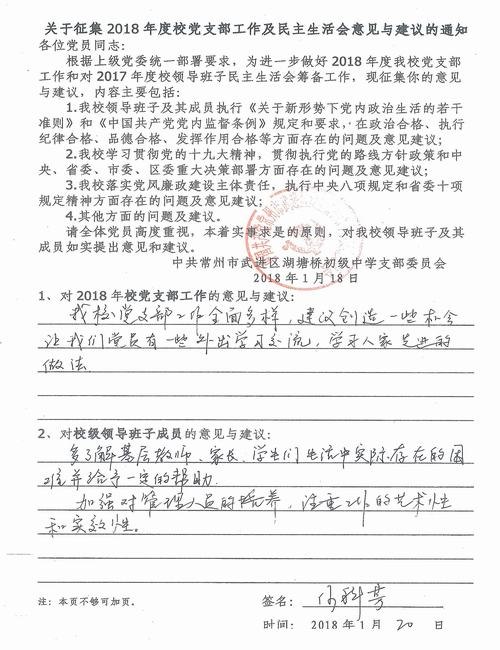 关于征集 2018 年度校党支部工作及民主生活会意见与建议的通知
各位党员同志：
根据上级党委统一部署要求，为进一步做好 2018 年度我校党支部
工作和对 2017 年度校领导班子民主生活会筹备工作，现征集你的意见
与建议，内容主要包括：
1.我校领导班子及其成员执行《关于新形势下党内政治生活的若干
准则》和《中国共产党党内监督条例》规定和要求，在政治合格、执行
纪律合格、品德合格、发挥作用合格等方面存在的问题及意见建议；
2.我校学习贯彻党的十九大精神，贯彻执行党的路线方针政策和中
央、省委、市委、区委重大决策部署方面存在的问题及意见建议；
3.我校落实党风廉政建设主体责任，执行中央八项规定和省委十项
规定精神方面存在的问题及意见建议；
4.其他方面的问题及建议。
请全体党员高度重视，本着实事求是的原则，对我校领导班子及其
成员如实提出意见和建议。
中共常州市武进区湖塘桥初级中学支部委员会
2018 年 1 月 18 日
1、对 2018 年校党支部工作的意见与建议：
我校党支部工作全面多样，建议创造一些机会
让我们党员有一些外出学习交流，学习人家先进的
做法
2、对校级领导班子成员的意见与建议：
多了解基层教师、家长、学生们生活中实际存在的困
难并给予一定的帮助.
加强对管理人员的培养，注重工作的艺术性
和实效性。
注：本页不够可加页。
签名：
时间： 2018 年 1 月 20 日